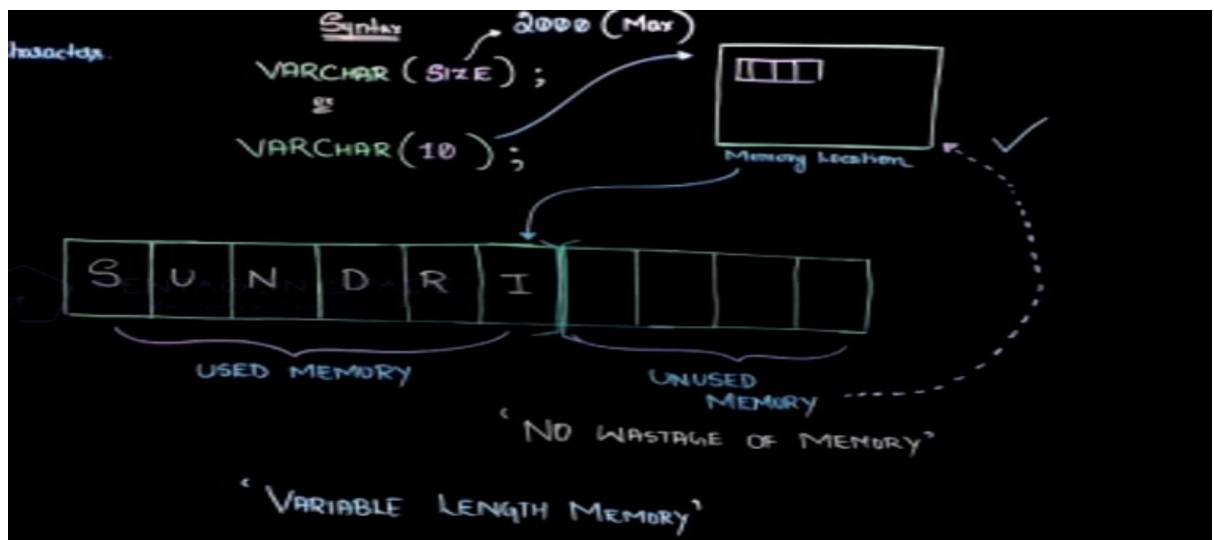 Syntax
2000 (Max)
VARCHAR (SIZE) ;
or
VARCHAR (10) ;
Memory Location
S U N D R I
USED MEMORY
UNUSED
MEMORY
'NO WASTAGE OF MEMORY'
'VARIABLE LENGTH MEMORY'